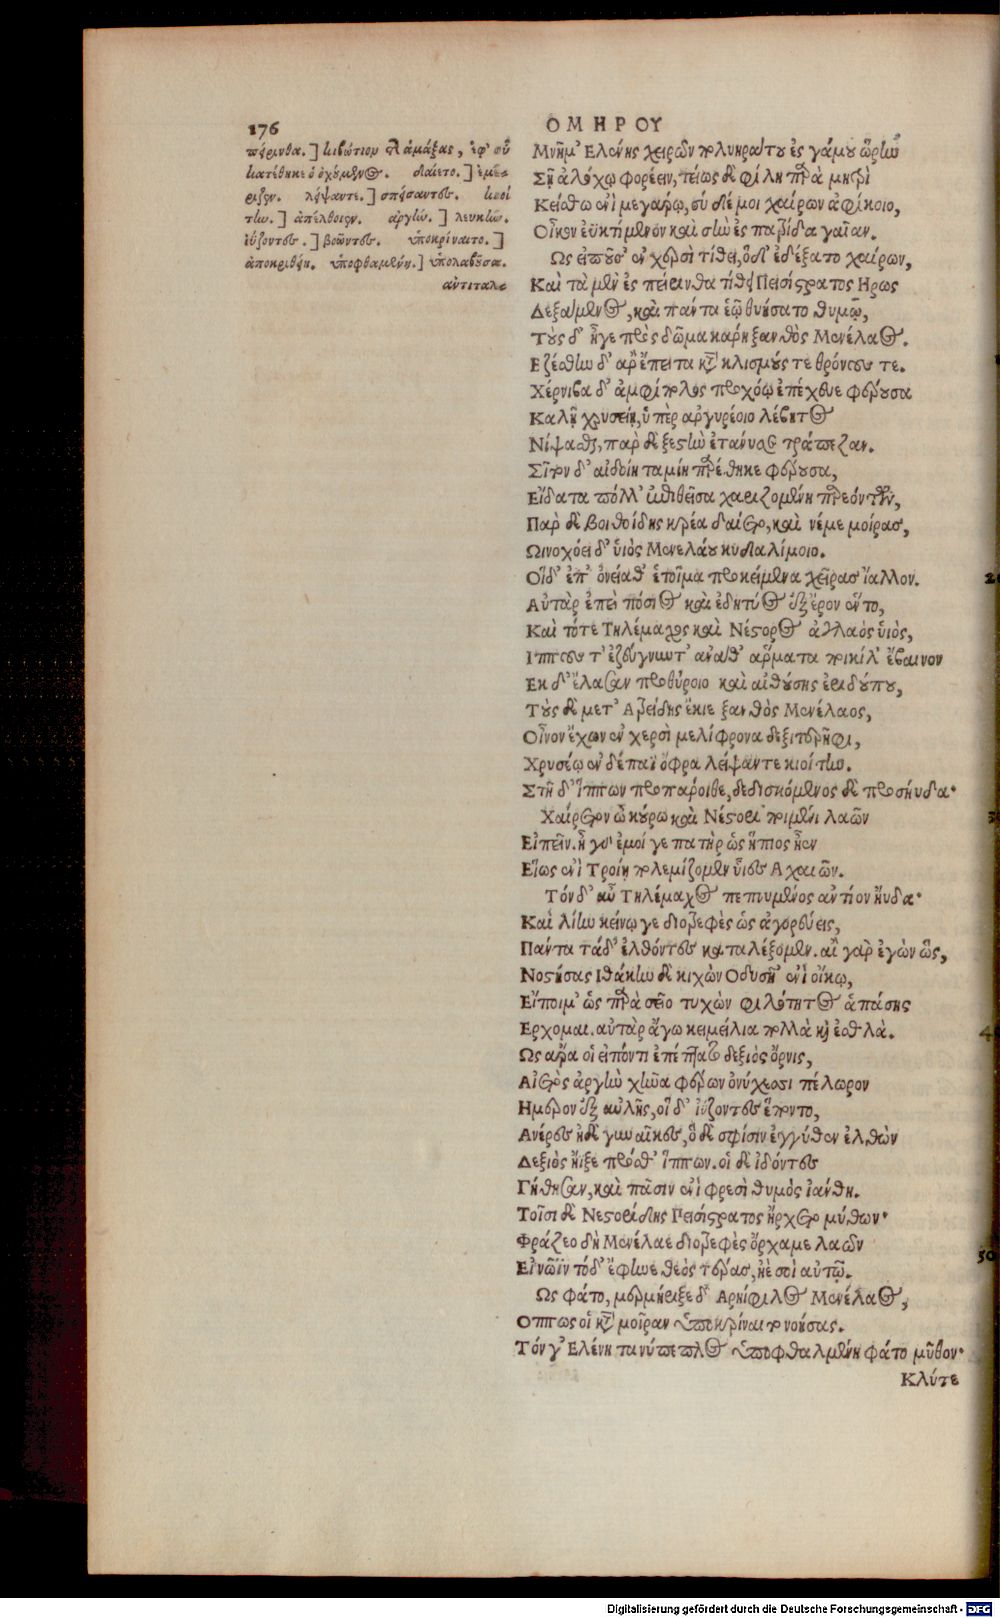 176
ΟΜΗΡΟΥ
πείρινθα.] κιβώτιον τῆς ἁμάξης, ἐφ' οὗ
κατέθηκε ὁ ὀχούμενος. δαίετο.] ἐμέ-
ριζεν. λείψαντε.] σπείσαντες. κιοί
την.] ἀπέλθοιεν. ἀργήν.] λευκήν.
ἰύζοντες.] βοῶντες. ὑποκρίναιτο.]
ἀποκριθείη. ὑποφθαμένη.] ὑπολαβοῦσα.
ἀντιταλ-
Μνῆμ' Ελένης χειρῶν πολυηράτου ἐς γάμου ὥρην
Σῇ ἀλόχῳ φορέειν, τείως δὲ φίλῃ παρὰ μητρὶ
Κείσθω ἐνὶ μεγάρῳ, σύ δέ μοι χαίρων ἀφίκοιο,
Οἶκον ἐϋκτήμενον καὶ σὴν ἐς πατρίδα γαῖαν.
Ως εἰποῦσ' ἐν χερσὶ τίθει, ὁ δ' ἐδέξατο χαίρων,
Καὶ τὰ μὲν ἐς πείρινθα τίθει Πεισίστρατος Ηρως
Δεξάμενος, καὶ πάντα ἑῷ θηήσατο θυμῷ,
Τοὺς δ' ἦγε πρὸς δῶμα κάρη ξανθὸς Μενέλαος.
Εζέσθην δ' ἄρ' ἔπειτα κατὰ κλισμούς τε θρόνους τε.
Χέρνιβα δ' ἀμφίπολος προχόῳ ἐπέχευε φέρουσα
Καλῇ χρυσείῃ, ὑπὲρ ἀργυρέοιο λέβητος
Νίψασθαι, παρὰ δὲ ξεστὴν ἐτάνυσσε τράπεζαν.
Σῖτον δ' αἰδοίη ταμίη παρέθηκε φέρουσα,
Εἴδατα πόλλ' ἐπιθεῖσα χαριζομένη παρεόντων,
Παρ δὲ Βοιθοίδης κρέα δαίετο, καὶ νέμε μοίρας,
Ωινοχόει δ' ὑιὸς Μενελάου κυδαλίμοιο.
Οἱ δ' ἐπ' ὀνείαθ' ἑτοῖμα προκείμενα χεῖρας ἴαλλον.
Αὐτὰρ ἐπεὶ πόσιος καὶ ἐδητύος ἐξ ἔρον ἕντο,
Καὶ τότε Τηλέμαχος καὶ Νέστορος ἀγλαὸς ὑιὸς,
Ιππους τ' ἐζεύγνυντ' ἀνά θ' ἅρματα ποικίλ' ἔβαινον
Εκ δ' ἔλασαν προθύροιο καὶ αἰθούσης ἐριδούπου,
Τοὺς δὲ μετ' Ατρείδης ἔκιε ξανθὸς Μενέλαος,
Οἶνον ἔχων ἐν χερσὶ μελίφρονα δεξιτερῆφι,
Χρυσέῳ ἐν δέπαϊ ὄφρα λείψαντε κιοίτην.
Στῆ δ' ἵππων προπάροιθε, δεδισκόμενος δὲ προσηύδα·
Χαίρετον ὦ κούρω καὶ Νέστορι ποιμένι λαῶν
Εἰπεῖν. ἦ γὰρ ἐμοί γε πατὴρ ὡς ἤπιος ἦεν
Εἵως ἐνὶ Τροίῃ πολεμίζομεν ὗιες Αχαιῶν.
Τὸν δ' αὖ Τηλέμαχος πεπνυμένος ἀντίον ηὔδα·
Καὶ λίην κείνῳ γε διοτρεφὲς ὡς ἀγορεύεις,
Πάντα τάδ' ἐλθόντες καταλέξομεν. αἲ γὰρ ἐγὼν ὣς,
Νοστήσας Ιθάκην δὲ κιχὼν Οδυσῆ' ἐνὶ οἴκῳ,
Εἴποιμ' ὡς παρὰ σεῖο τυχὼν φιλότητος ἁπάσης
Ερχομαι. αὐτὰρ ἄγω κειμήλια πολλὰ καὶ ἐσθλὰ.
Ως ἄρα οἱ εἰπόντι ἐπέπτατο δεξιὸς ὄρνις,
Αἰετὸς ἀργὴν χῆνα φέρων ὀνύχεσσι πέλωρον
Ημερον ἐξ αὐλῆς, οἱ δ' ἰύζοντες ἕποντο,
Ανέρες ἠδὲ γυναῖκες, ὁ δὲ σφίσιν ἐγγύθεν ἐλθὼν
Δεξιὸς ἤϊξε πρόσθ' ἵππων. οἱ δὲ ἰδόντες
Γήθησαν, καὶ πᾶσιν ἐνὶ φρεσὶ θυμὸς ἰάνθη.
Τοῖσι δὲ Νεστορίδης Πεισίστρατος ἤρχετο μύθων·
Φράζεο δὴ Μενέλαε διοτρεφὲς ὄρχαμε λαῶν
Εἰ νῶϊν τόδ' ἔφηνε θεὸς τέρας, ἠὲ σοὶ αὐτῷ.
Ως φάτο, μερμήριξε δ' Αρηίφιλος Μενέλαος,
Οππως οἱ κατὰ μοῖραν ὑποκρίναιτο νοήσας.
Τόν γ' Ελένη τανύπεπλος ὑποφθαμένη φάτο μῦθον·
Κλύτε
Digitalisierung gefördert durch die Deutsche Forschungsgemeinschaft - DFG